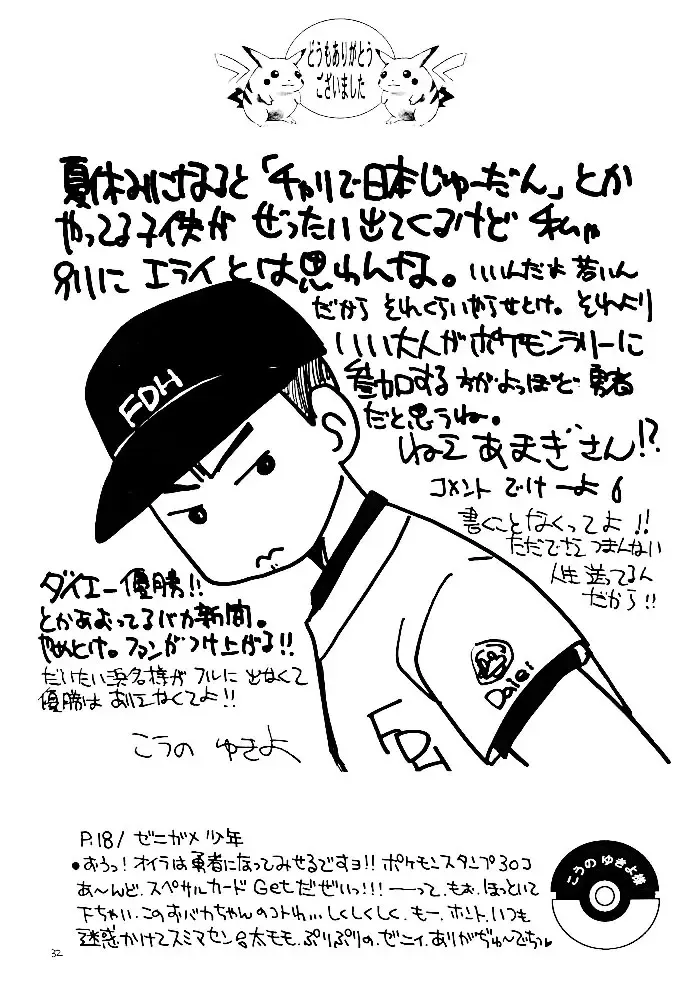 どうもありがとう
ございました
夏休みになると「チャリで日本じゅーだん」とか
やってる子供が ぜったい出てくるけど 私ゃ
別に エライとは思わんな。いいんだよ 若いん
だから それくらいやらせとけ。それより
いい大人がポケモンラリーに
参加する方がよっぽど 勇者
だと思うね。
ねェ あまぎさん!?
コメント でけーよ
書くことなくってよ!!
ただでさえ つまんない
人生 送ってるん
だから!!
FDH
ダイエー優勝!!
とかあおってるバカ新聞。
やめとけ。ファンがつけ上がる!!
だいたい浜名様が フルに 出なくて
優勝は ありえなくてよ!!
こうの ゆきよ
Daiei
FDH
P.18/ ゼニガメ少年
●おうっ!オイラは勇者になってみせるですヨ!! ポケモンスタンプ30コ
あ〜んど、スペサルカード Getだぜいっ!!! ——って、もぉ、ほっといて
下ちゃい、このおバカちゃんのコトわ… しくしくしく、もー、ホント、いつも
迷惑かけてスミマセン 太モモ、ぷりぷりの、ゼニィ、ありがぢゅ〜でちっ♥
こうの ゆきよ様
32